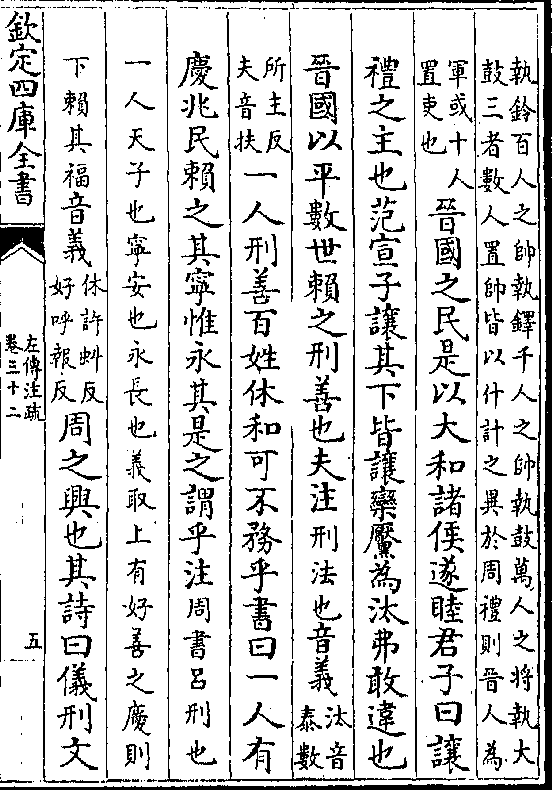 執鈴百人之帥執鐸千人之帥執鼓萬人之將執大
鼓三者數人置帥皆以什計之異於周禮則晉人為
軍或十人
置吏也
晉國之民是以大和諸侯遂睦君子曰讓
禮之主也范宣子讓其下皆讓欒黶為汰弗敢違也
晉國以平數世賴之刑善也夫注刑法也音義
汰音
泰數
所主反
夫音扶
一人刑善百姓休和可不務乎書曰一人有
慶兆民賴之其寧惟永其是之謂乎注周書呂刑也
一人天子也寧安也永長也義取上有好善之慶則
下賴其福音義
休許虬反
好呼報反
周之興也其詩曰儀刑文
欽定四庫全書
左傳注疏
卷三十二
五